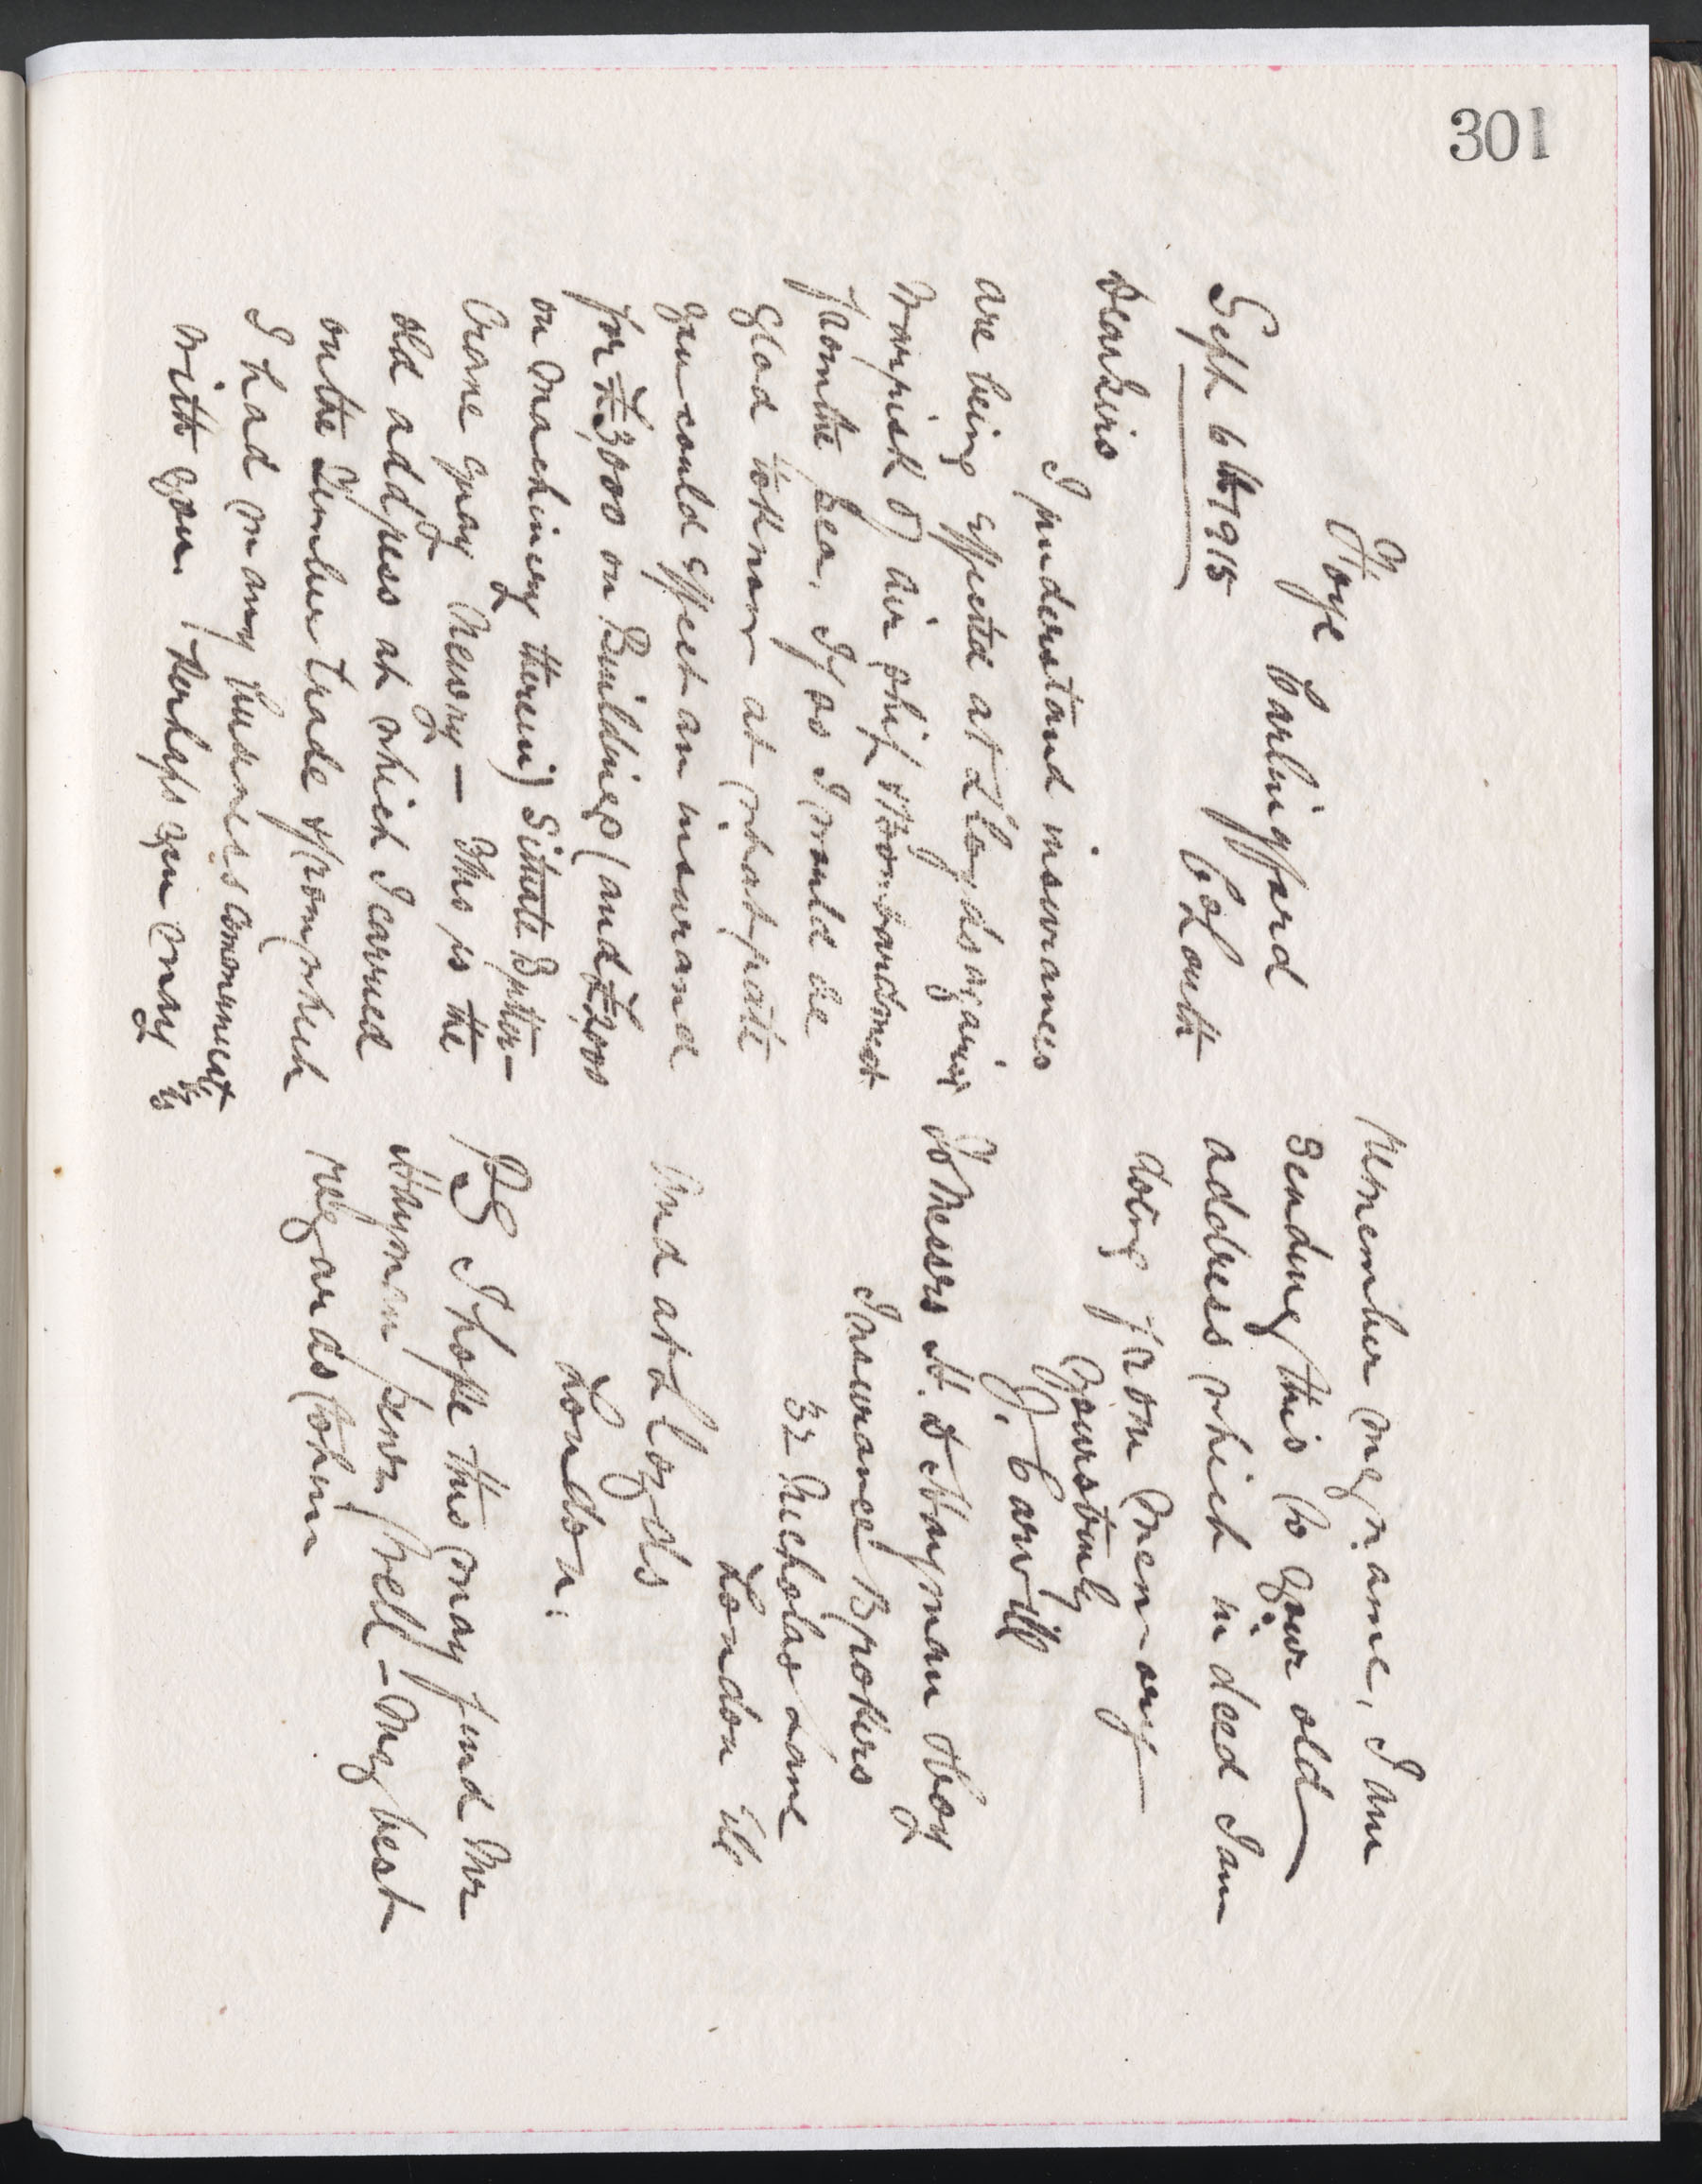 301
Foye Carlingford
Co Louth
Sept 6th 1915
Dear Sirs
I understand insurances
are being effected at Lloyds against
War risk & air ship & Bombardment
from the sea, If so I would be
glad to know at what rate
you could effect an insurance
for £3,000 on Buildings (and £2,000
on machinery therein) Situate Butter-
Crane Quay Newry — This is the
old address at which I carried
on the Timber trade & from which
I had many business communicat
with you. Perhaps you may
remember my name, I am
sending this to your old
address which indeed I am
doing from memory —
Yours truly
J. Carvill
To Messrs H. & Hayman & Boy
Insurance Brokers
32 Nicholas Lane
London EC
And at Lloyds
London:
PS I hope this may find Mr
Hayman Senr well — My best
regards to him